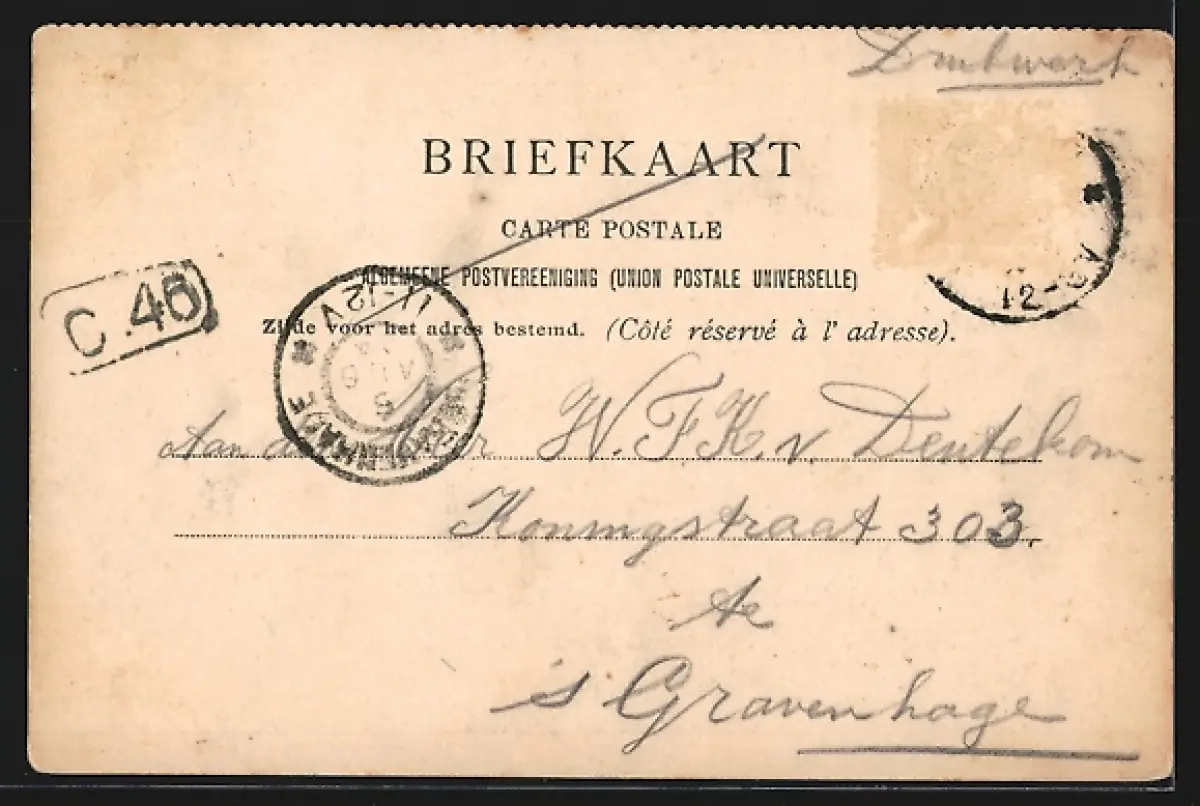 Drukwerk
BRIEFKAART
CARTE POSTALE
ALGEMEENE POSTVEREENIGING (UNION POSTALE UNIVERSELLE)
Zijde voor het adres bestemd. (Côté réservé à l' adresse).
C. 46
11-12V
5
AUG
'S GRAVENHAGE
12-3 NA
Aan den Heer W. F. K. v. Deutekom
Koningstraat 303.
te
's Gravenhage